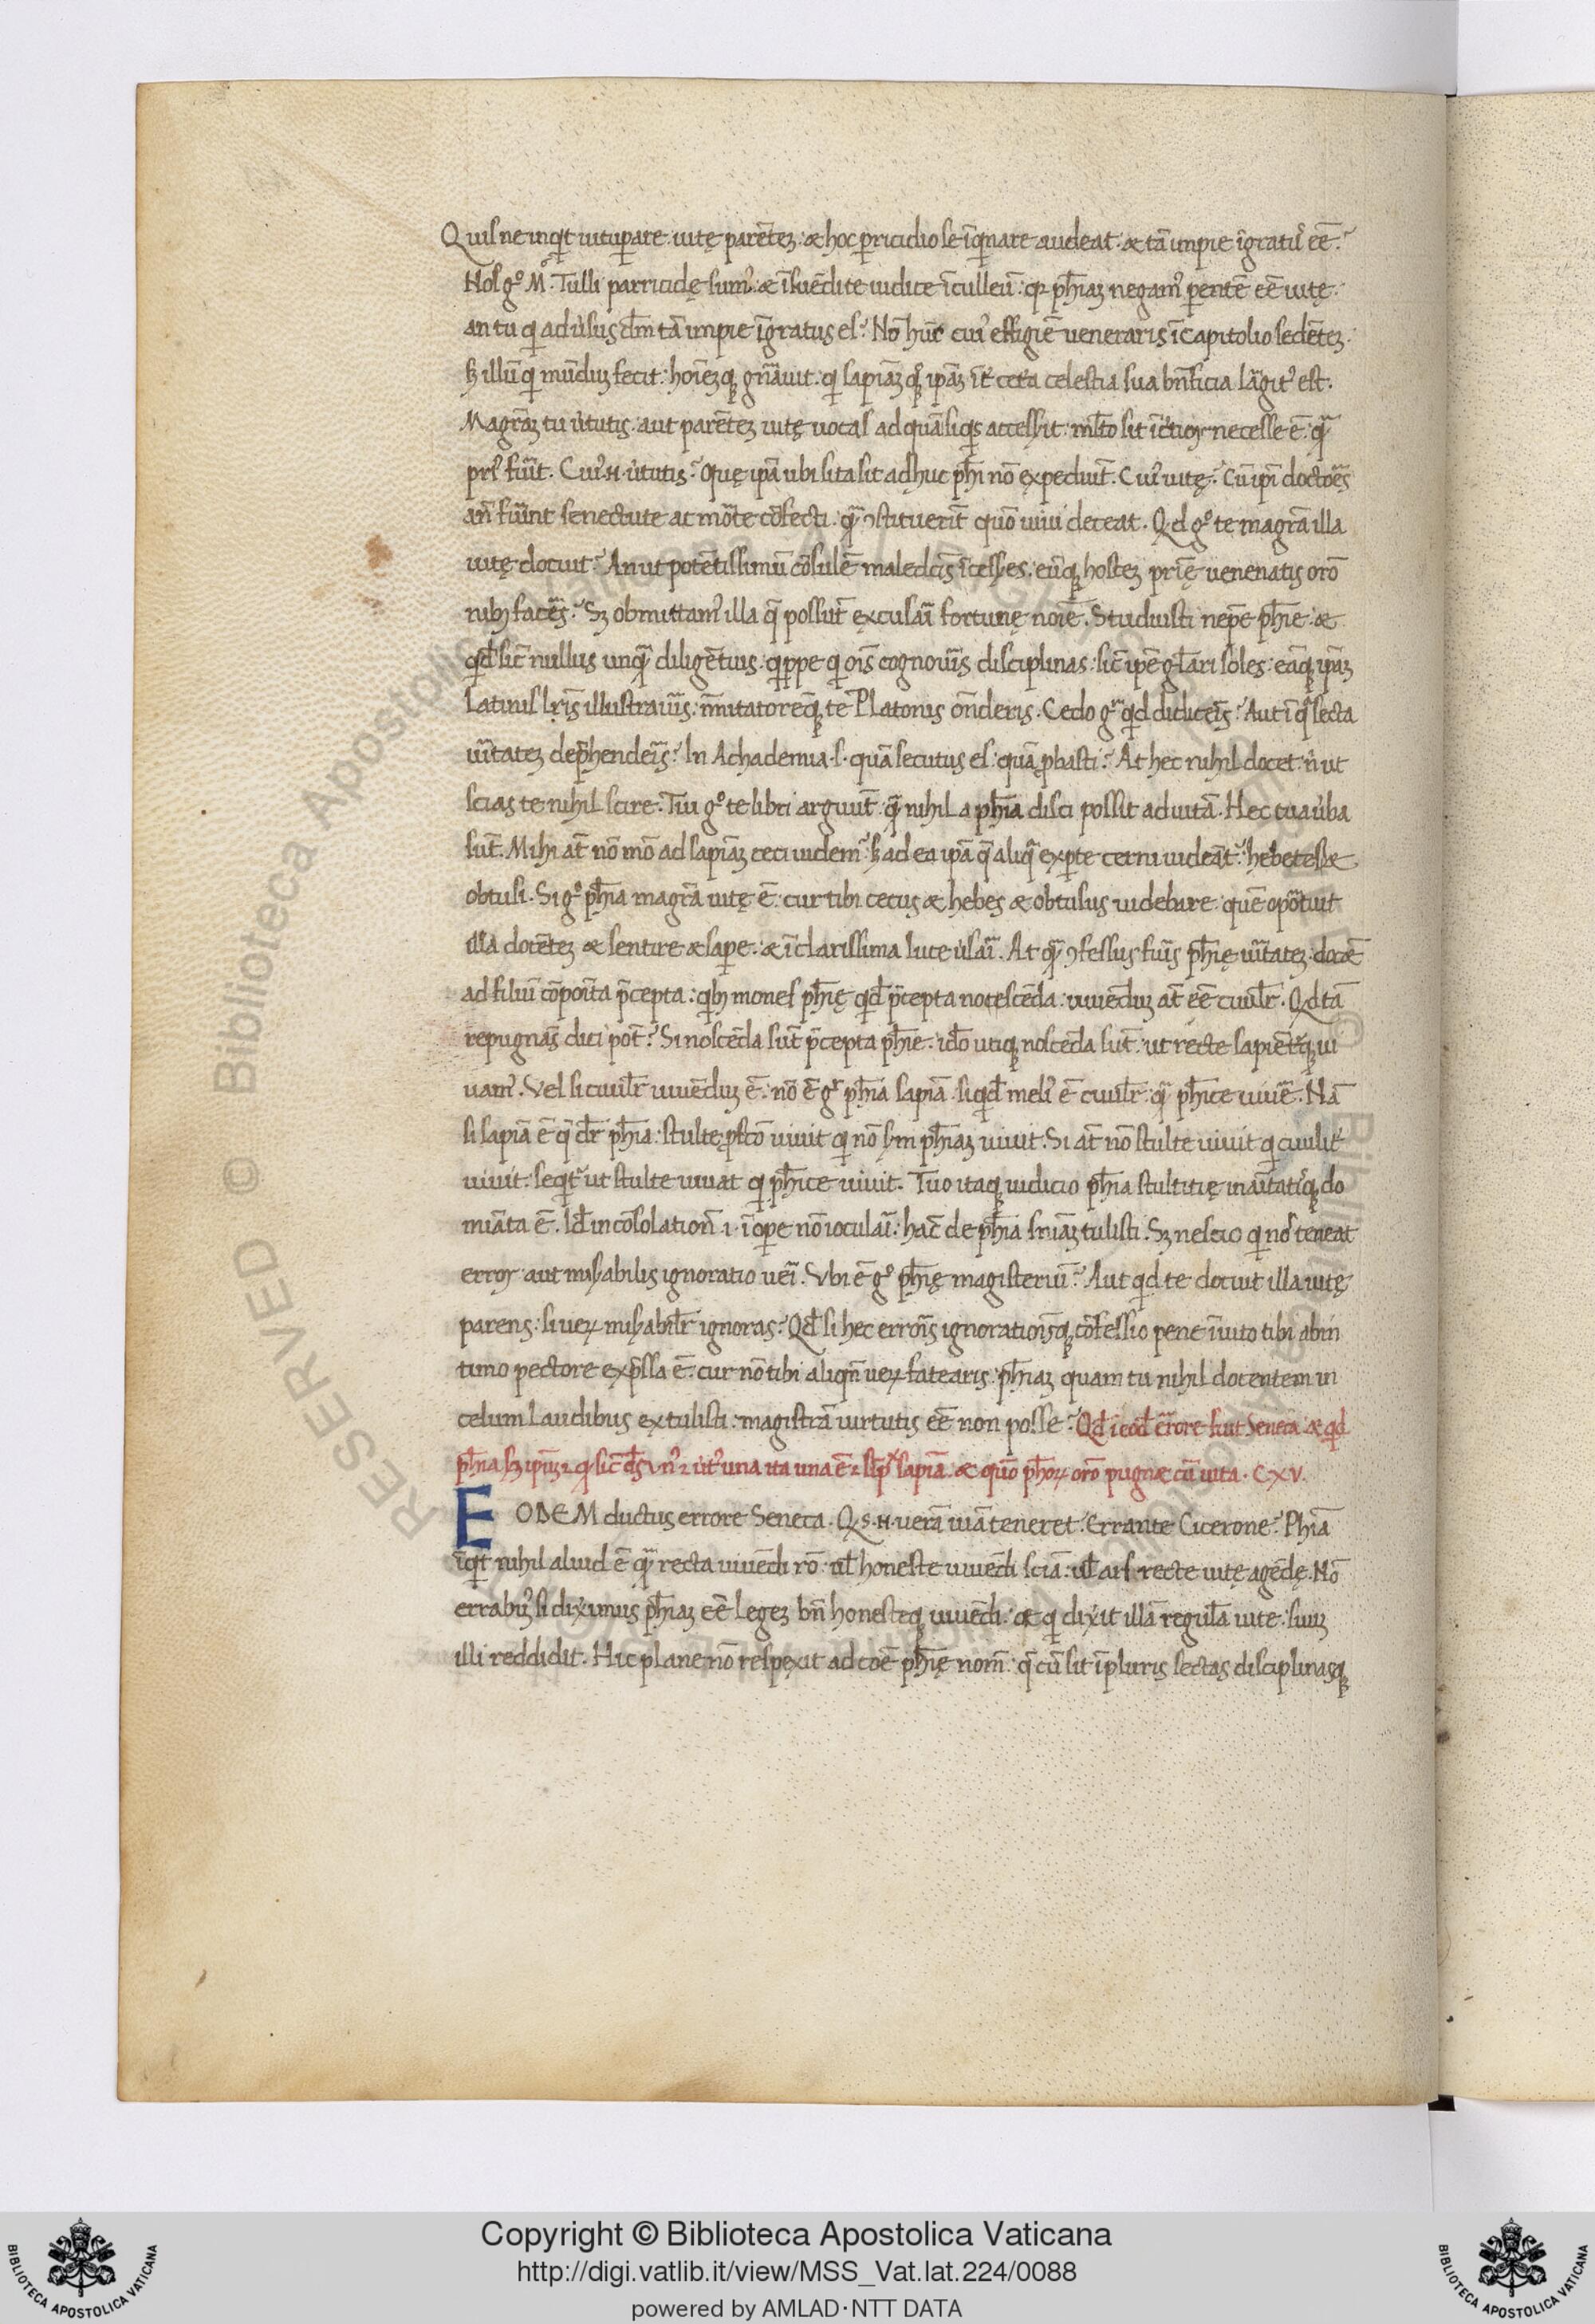 Quisne inqͥt uituꝑare uitę parētez: & hoc ꝑricidio se īqͥnare audeat: & tā impie īgratuˀ eē?
Nos gͦ Mͦ. Tulli parricidę sumˀ: & īsuēdi te iudice ī culleū: qꝛ ph̄iaz negamˀ ꝑentē eē uitę.
an tu qͥ aduˀsus dm̄ tā impie īgratus es? Nō hūc cuiˀ effigiē ueneraris ī capitolio sedētez.
sꝫ illū qͥ mūduz fecit: hoīezqꝫ gn̄auit. qͥ sapiāz qͦqꝫ ip̄az īt̄ cet̄a celestia sua bn̄ficia lārgitˀ est.
Magrāz tu uˀtutis aut parētez uitę uocas ad quā si qͥs accessͥit: ml̄to sit īc̄tior necesse ē: qͣ̄
priˀ fuīt. Cuiˀ .N. uˀtutis? Quę ip̄a ubi sita sit adhuc ph̄i nō expediūt. Cuiˀ uitę? Cū ip̄i doctoēs
an̄ fuīnt senectute ac mōte cōfecti: qͣ̄ ꝯstituerīt quō uiui deceat. Qd gͦ te magrā illa
uitę docuit? An ut potētissimū cōsulē maledc̄is īcesseˀs: eūqꝫ hostez prīę uenenatis orō
nibꝫ faceˀs? Sꝫ obmittamˀ illa q̄ possūt excusaī fortunę noīe. Studuisti nēpe ph̄ie &
qd̄ sic̄ nullus unqͣ̄ diligētius: qͥppe qͥ oīs cognouis̄ disciplinas: sic̄ ip̄e gl̄ari soles: eāqꝫ ip̄az
Latinis lr̄is illustrauis̄: īmitatorēqꝫ te Platonis on̄deris. Cedo gͦ qͥd didiceīs? Aut ī qͣ secta
uītatez dep̄hendeīs? In Achademia .s. quā secutus es: quā ꝓbasti? At hec nihil docet: nͥ ut
scias te nihil scire. Tui gͦ te libri arguūt: qͣ̄ nihil a ph̄ia disci possit ad uitā. Hec tua uˀba
sūt. Mihi at̄ nō mō ad sapiāz ceci uidem̄? sꝫ ad ea ip̄a q̄ aliqͣ ex ꝑte cerni uideāt̄? hebetes &
obtusi. Si gͦ ph̄ia magrā uitę ē: cur tibi cecus & hebes & obtusus uidebare: quē opōtuit
illa docētez & sentire & saꝑe: & ī clarissima luce uˀsaī. At qͣ̄ ꝯfessus fuis̄ ph̄ię uītatez: docēt
ad filiū cōpoīta p̄cepta: qͥbꝫ mones ph̄ię qͥd̄ p̄cepta noscēda: uiuēduz at̄ eē ciuilr̄. Qd tā
repugnās dici pōt? Si noscēda sūt p̄cepta ph̄ie: idō utiqꝫ noscēda sūt: ut recte sapiētqꝫ ui
uamˀ. Vel si ciuilr̄ uiuēduz ē: nō ē gͦ ph̄ia sapiā: siqͥd̄ meliˀ ē ciuilr̄: qͣ̄ ph̄ice uiuē. Nā
si sapiā ē q̄ dr̄ ph̄ia: stulte ꝓfcō uiuit qͥ nō sm̄ ph̄iaz uiuit. Si at̄ nō stulte uiuit qͥ ciuilit̄
uiuit: seqͥt̄ ut stulte uiuat qͥ ph̄ice uiuit. Tuo itaqꝫ iudicio ph̄ia stultitię inaītatisqꝫ do
miāta ē. Id̄ in cōsolation̄ .i. ī oꝑe nō ioculaī: hāc de ph̄ia sn̄iaz tulisti. Sꝫ nescio qͥ nos teneat
error aut misˀabilis ignoratio ueī. Vbi ē gͦ ph̄ię magisteriū? Aut qͥd te docuit illa uitę
parens: si ueꝝ misˀabilr̄ ignoras? Qd̄ si hec erroīs ignoratioīsqꝫ cōfessio pene īuito tibi ab in
timo pectore exp̄ssa ē: cur nō tibi aliqn̄ ueꝝ fatearis: ph̄iaz quam tu nihil docentem in
celum laudibus extulisti: magistrā uirtutis eē non posse? Qd̄ ī eod̄ erˀore fuit Seneca & qͥd
ph̄ia
EODEM ductus errore Seneca. Qͥs .N. uerā uiā teneret: Errante Cicerone? Ph̄ia
īqͥt nihil aliud ē qͣ̄ recta uiuēdi rō: ul̄ honeste uiuēdi sciā: ul̄ ars recte uitę agēdę. Nō
errabimˀ si diximus ph̄iaz eē legez bn̄ honesteqꝫ uiuēdi: & qͥ dixit illā regulā uite: suuz
illi reddidit. Hic plane nō respexit ad coē ph̄ię nom̄: q̄ cū sit ī pluris sectas disciplinasqꝫ
Copyright © Biblioteca Apostolica Vaticana
http://digi.vatlib.it/view/MSS_Vat.lat.224/0088
powered by AMLAD·NTT DATA